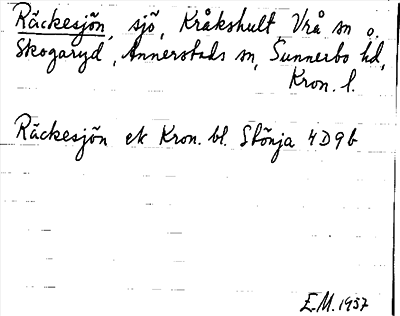 Räckesjön, sjö, Kråkshult Vrå sn o.
Skogaryd, Annerstads sn, Sunnerbo hd,
Kron. l.
Räckesjön ek Kron. bl. Stönja 4D9b
E.M. 1957